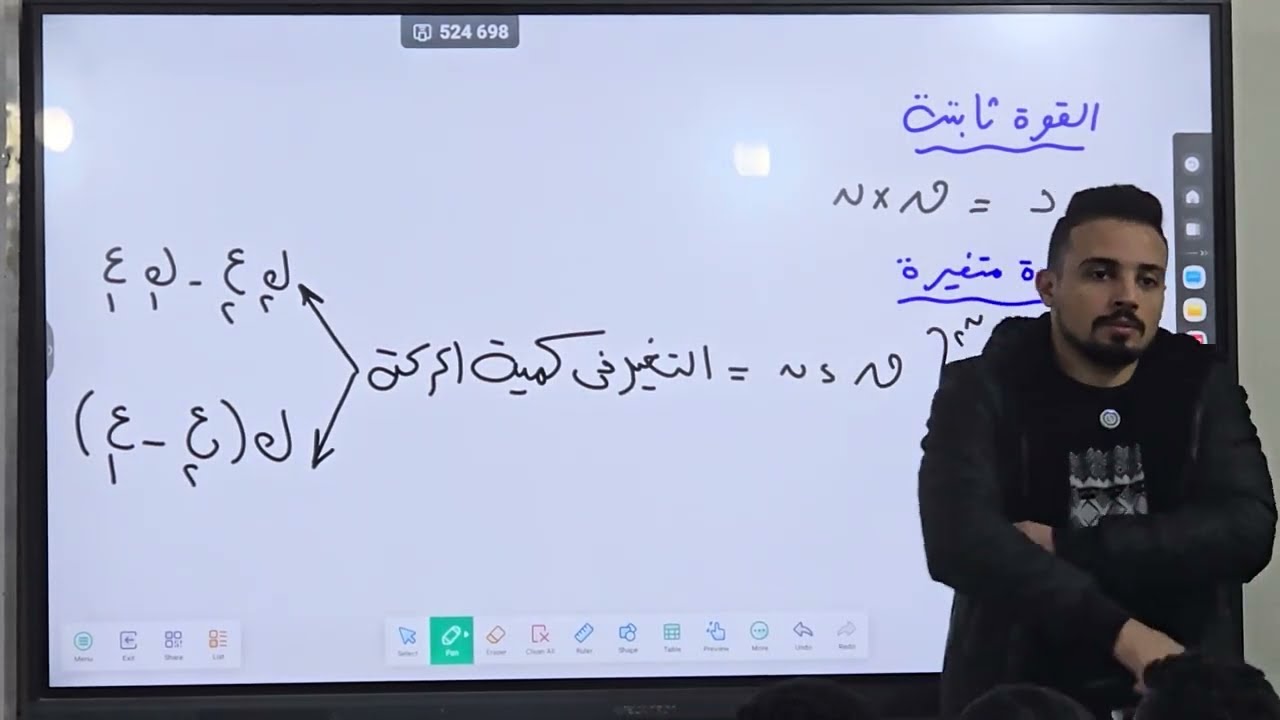 524 698
القوة ثابتة
د = ق × ن
ة متغيرة
ق د ن = التغير فى كمية الحركة
ك٢ ع٢ - ك١ ع١
ك (ع٢ - ع١)
Menu Exit Share List Select Pen Eraser Clean All Ruler Shape Table Preview More Undo Redo